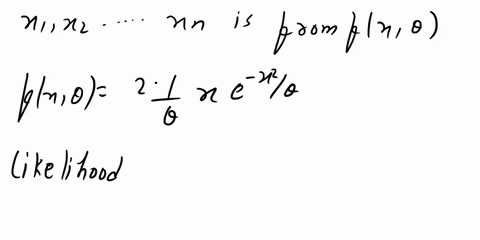 x1, x2 ..... xn is from f(x, θ)
f(x, θ) = 2·1/θ x e^-x²/θ
likelihood